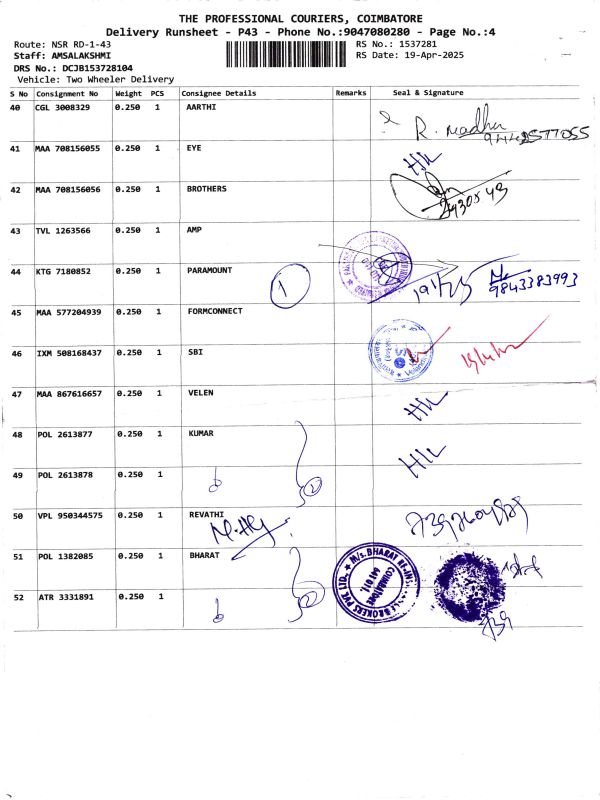 THE PROFESSIONAL COURIERS, COIMBATORE
Delivery Runsheet - P43 - Phone No.:9047080280 - Page No.:4
Route: NSR RD-1-43 RS No.: 1537281
Staff: AMSALAKSHMI RS Date: 19-Apr-2025
DRS No.: DCJB153728104
Vehicle: Two Wheeler Delivery
S No Consignment No Weight PCS Consignee Details Remarks Seal & Signature
40 CGL 3008329 0.250 1 AARTHI
R. Madhu
9442577055
41 MAA 708156055 0.250 1 EYE
42 MAA 708156056 0.250 1 BROTHERS
2430543
43 TVL 1263566 0.250 1 AMP
44 KTG 7180852 0.250 1 PARAMOUNT
1
9843383993
45 MAA 577204939 0.250 1 FORMCONNECT
46 IXM 508168437 0.250 1 SBI
47 MAA 867616657 0.250 1 VELEN
48 POL 2613877 0.250 1 KUMAR
49 POL 2613878 0.250 1
2
50 VPL 950344575 0.250 1 REVATHI
51 POL 1382085 0.250 1 BHARAT
M/s. BHARAT
BROKERS PVT LTD.
COIMBATORE
52 ATR 3331891 0.250 1
2
739